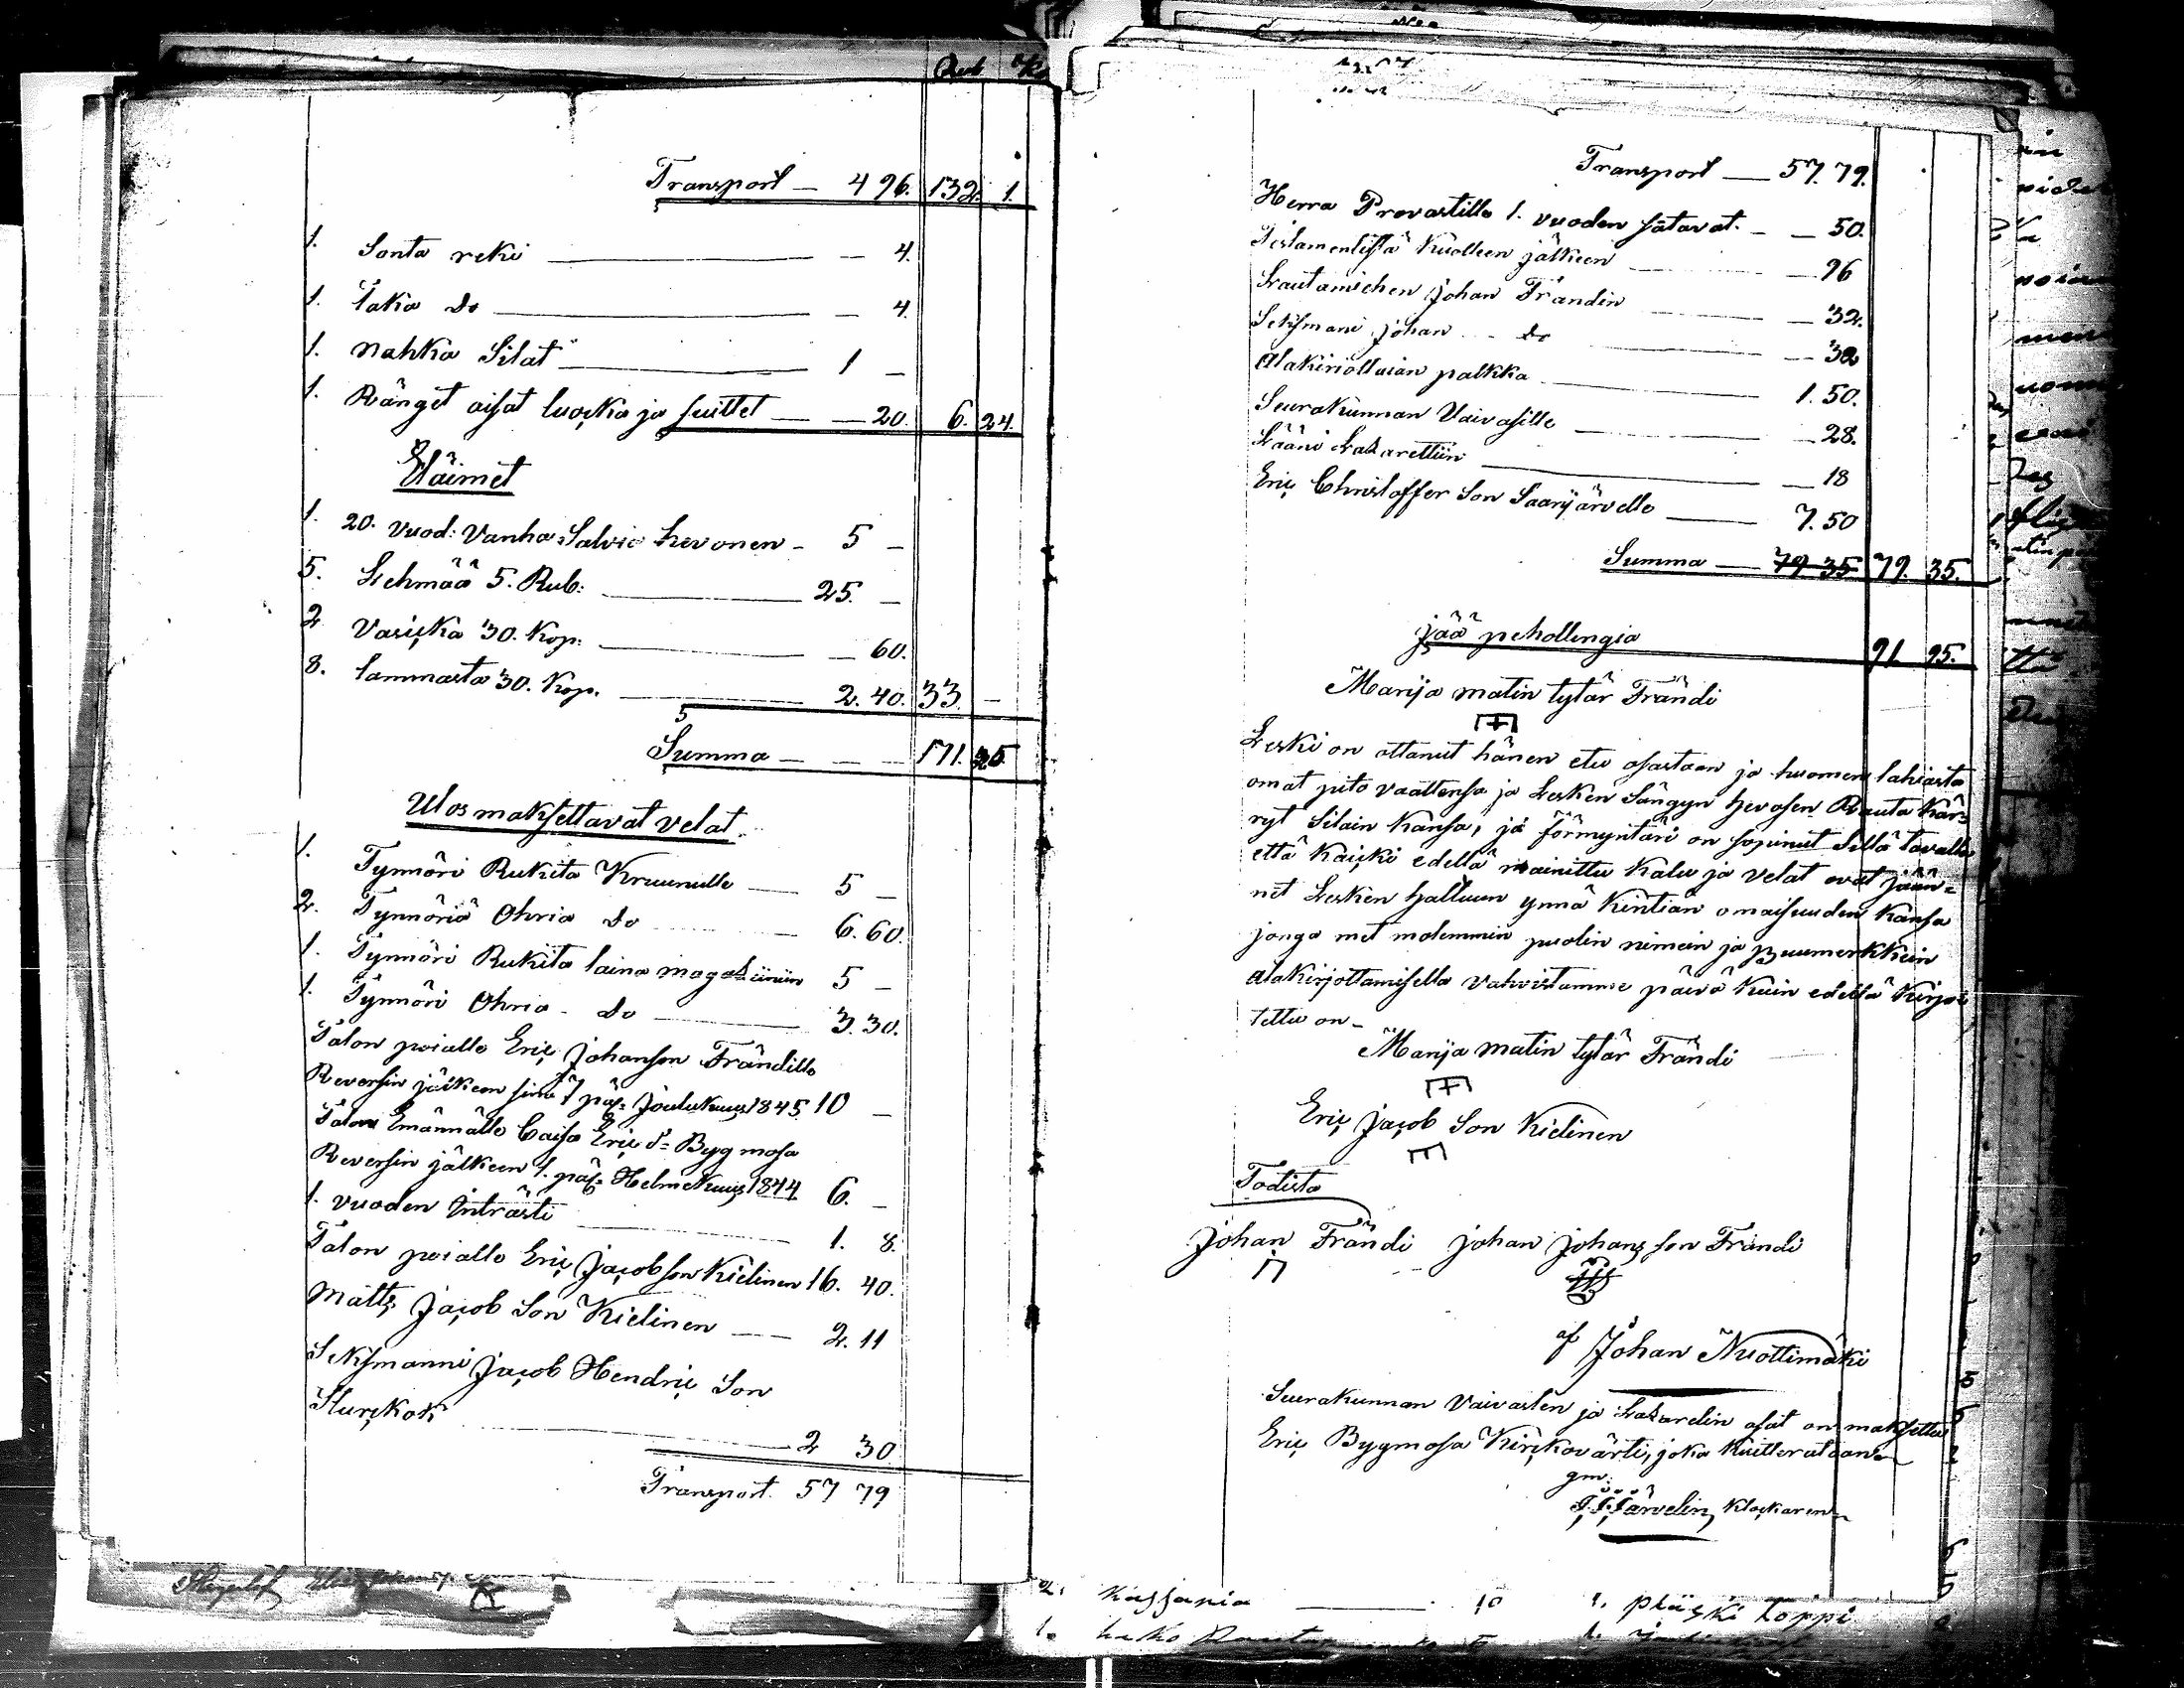 Rub Ko
Transport — 4 96. 132. 1.
1. Sonta reki — 4.
1. Taka do — 4
1. nahka Silat — 1 —
1. Ränget aisat luocka ja suittet — 20. 6. 24.
Eläimet
1. 20. vuod: Vanha Salvia hevonen - 5 —
5. Lehmää 5. Rub: — 25. —
2 Vasicka 30. Kop: — 60.
8. lammasta 30. Kop. — 2. 40. 33. —
Summa — 171. 25
Ulos maksettavat velat.
1. Tynnöri Rukita Kruunulle — 5 —
2. Tynnöriä Ohria do 6. 60.
1. Tynnöri Rukita laina magaziiniin 5 —
1. Tynnöri Ohria - do — 3. 30.
Talon poialle Eric Johanson Frändille
Reversin jälkeen sinä 7 päi: Joulukuus 1845 10 —
Talon Emännälle Caisa Eric d= Bygmosa
Reversin jälkeen 1. päi: Helmekuus 1844 6. —
1. vuoden Inträsti — 1. 8.
Talon poialle Eric Jacobson Kielinen 16. 40.
Matts Jacob Son Kielinen — 2. 11
Seksmanni Jacob Hendric Son
— 2 30
Transport. 57 79
Transport — 57. 79.
Herra Provastille 1. vuoden satavat. — 50.
Testamentistä Kuolleen jälkeen — 96
Lautamiehen Johan Frändin — 32.
Seksmani Johan do — 32
Alakiriottaian palkka — 1. 50.
Seurakunnan Vaivasille — 28.
Lääni Lazarettiin — 18
Eric Christoffer Son Saarijärvelle — 7. 50
Summa — 79 35 79. 35.
jää pehollingia 91 95.
Marija matin tytär Frändi
Leski on ottanut hänen etu osastaan ja huomen lahiasta
omat pito vaattensa ja Lesken Sängyn hevosen Rauta Kär=
ryt Silain kansa, ja förmyntäri on sopinut sillä tavalla
että kaicki edellä mainittu kalu ja velat ovat jään=
net Lesken haltuun ynnä kintiän omaisuuden kansa
jonga met molemmin puolin nimein ja puumerkkein
alakirjottamisella vahvistamme päivä kuin edellä kirjoi
tettu on -
Marija matin tytär Frändi
Eric Jacob Son Kielinen
Todista
Johan Frändi Johan Johans son Frändi
af Johan Nuottimäki
Seurakunnan Vaivasten ja Lazaretin osat on maksettu
Eric Bygmosa Kirckovärti, joka kuitterataan
gm:
Järvelin, Klockaren
2. Kassania — 10 1. plåcki toppi